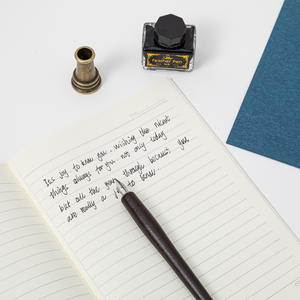 Feather Pen
Its joy to know you, wishing the nicest
things always for you not only today
but all the year through because you
are really a joy to know.